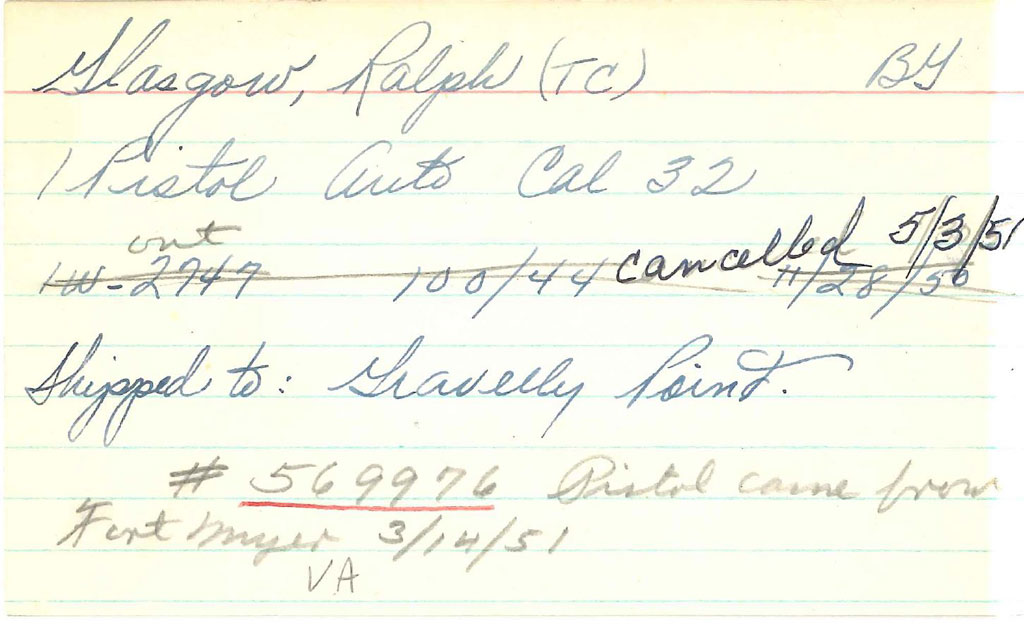 Glasgow, Ralph (TC) BG
1 Pistol Auto Cal 32
out
IW-2747 100/44 cancelled 5/3/51
11/28/50
Shipped to: Gravelly Point.
# 569976 Pistol came from
Fort Myer 3/14/51
VA